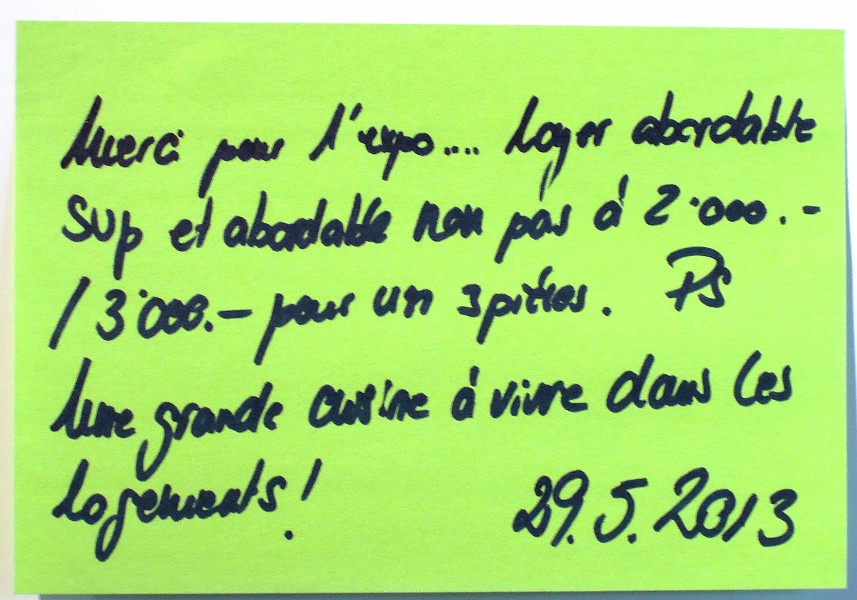 Merci pour l'expo.... Loyer abordable
Sup et abordable non pas à 2'000.-
/ 3'000.- pour un 3pièces. PS
Une grande cuisine à vivre dans les
Logements!
29.5.2013